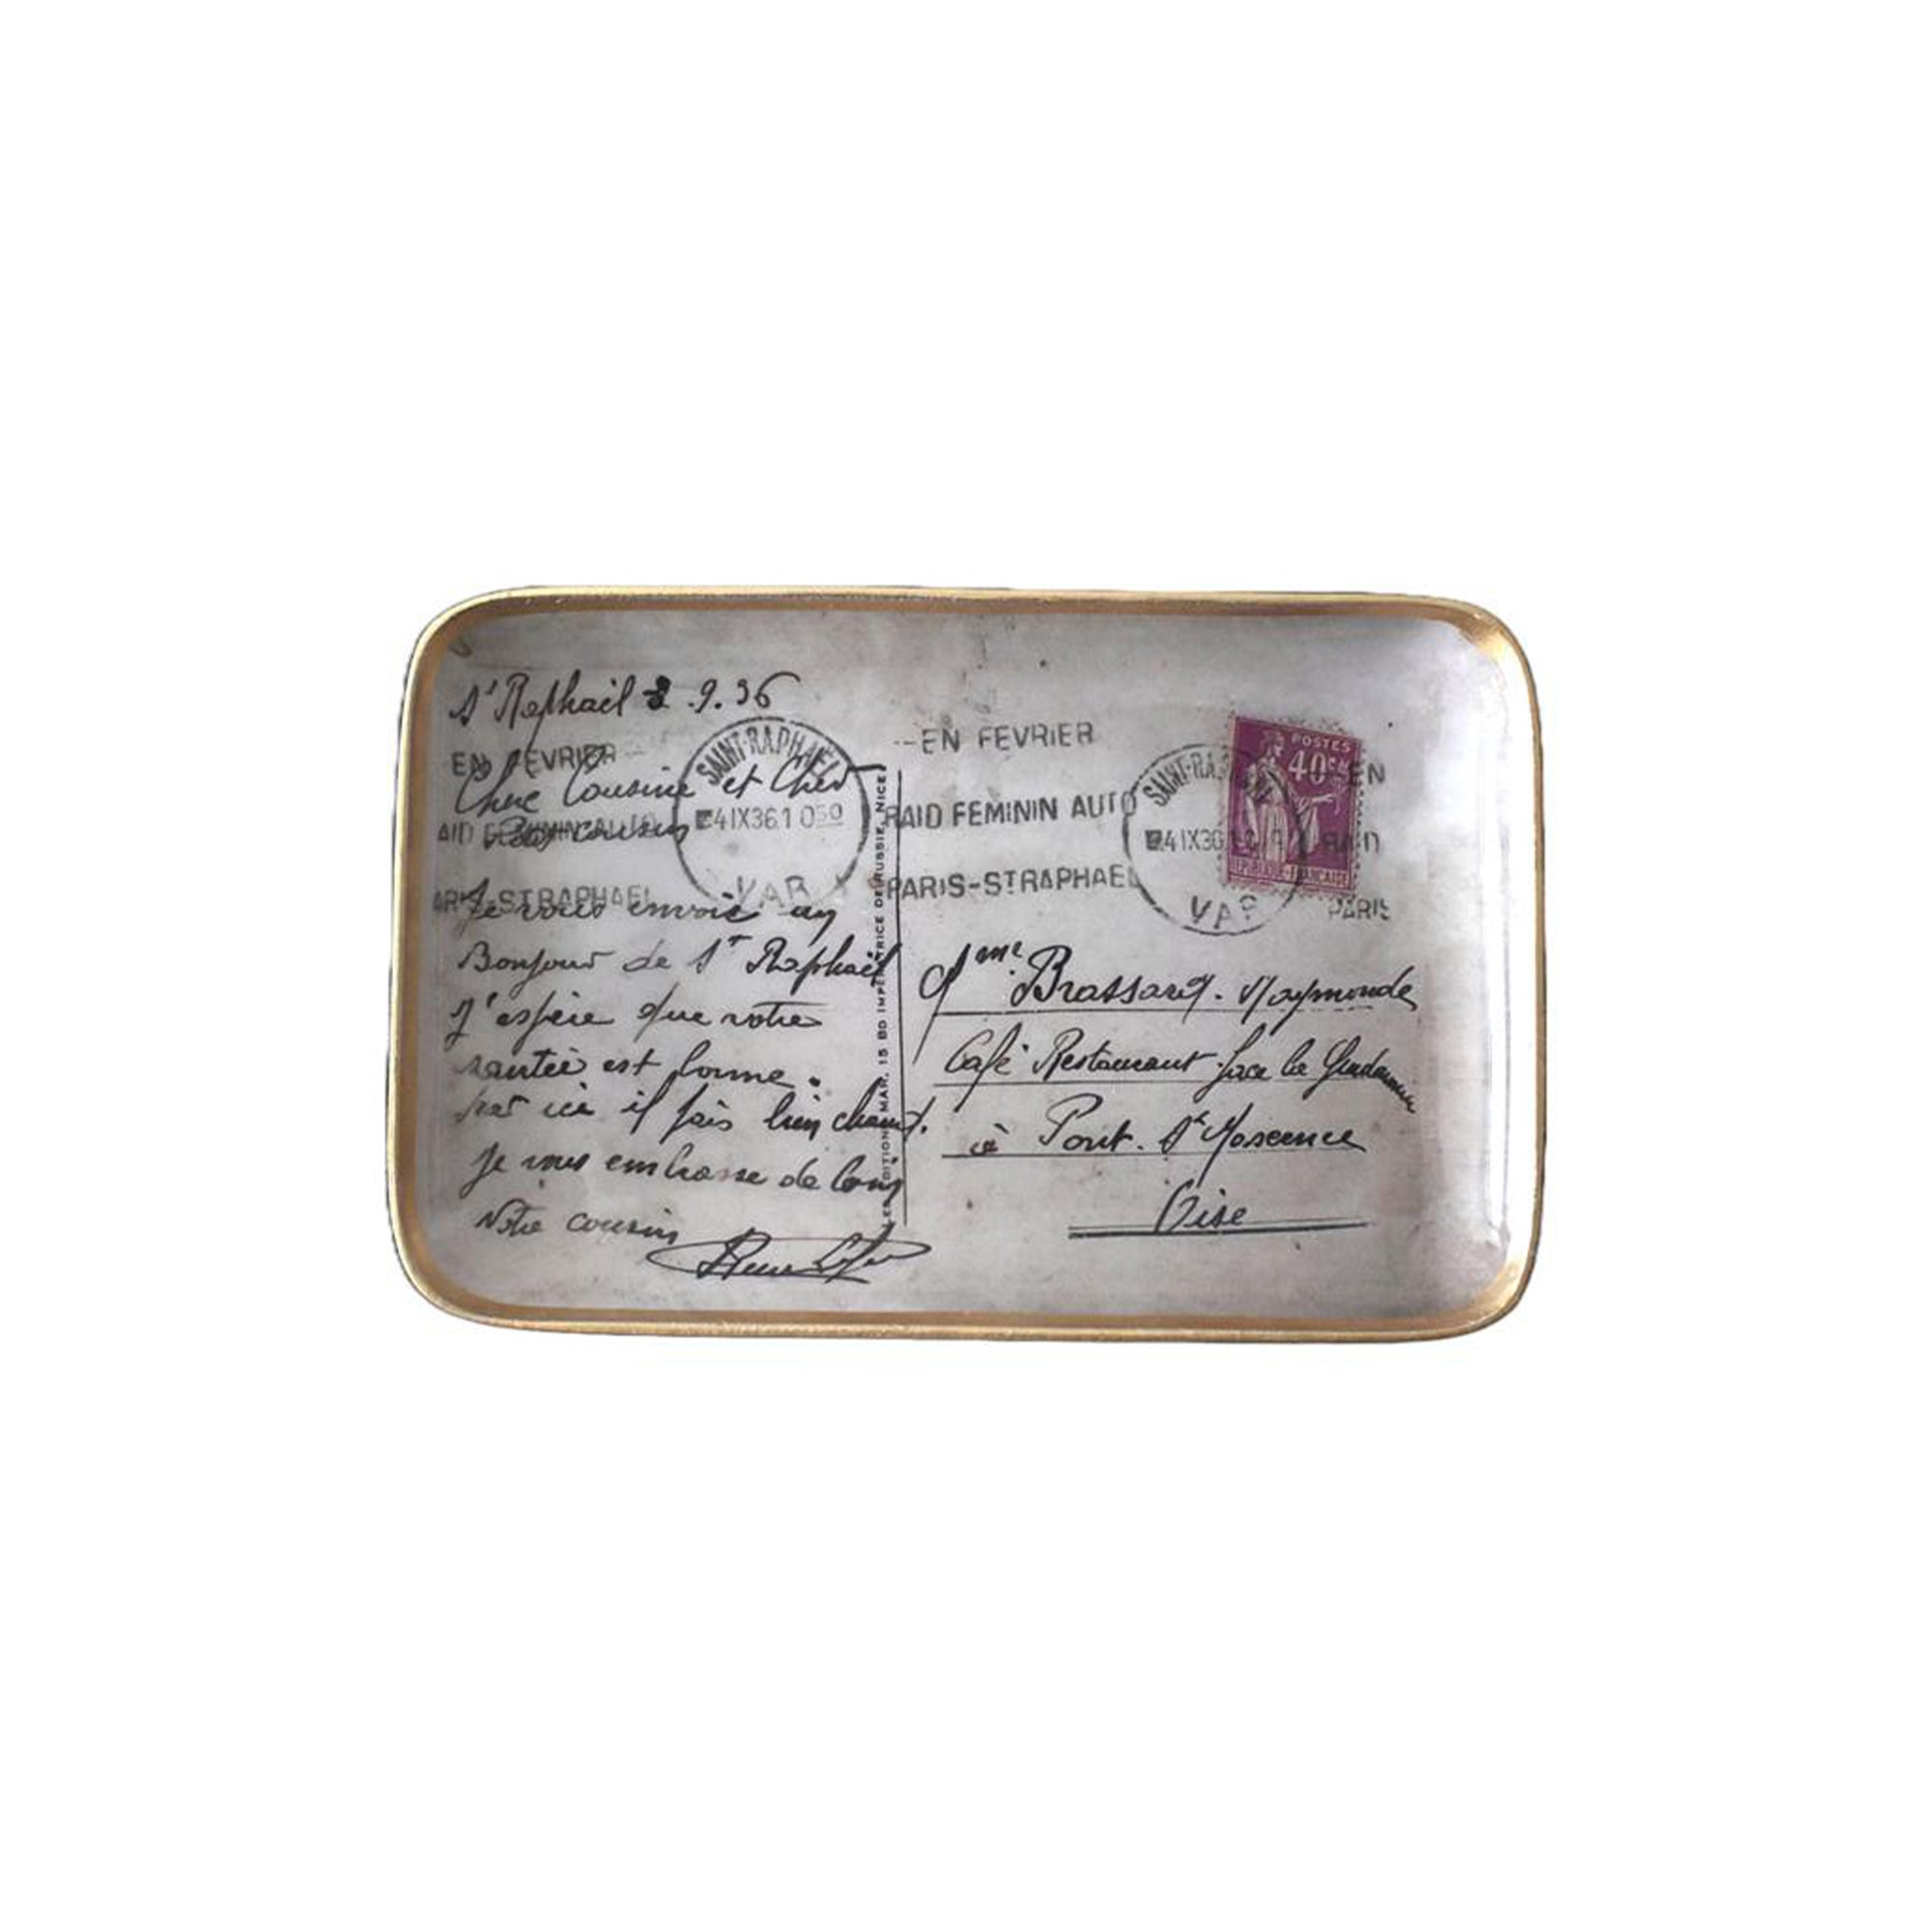 St Raphaël 3.9.36
EN FEVRIER
Chère Cousine et Cher
AID FEMININ AUTO
Petit cousin
ARIS-ST RAPHAEL
SAINT-RAPHAEL
4 IX 36 1050
VAR
Je vous envoie un
Bonjour de St Raphaël
J'espère que votre
santée est bonne.
par ici il fais bien chaud.
Je vous embrasse de loin
Votre cousin
LES EDITIONS MAR, 15 BD IMPERATRICE DE RUSSIE, NICE
--EN FEVRIER
RAID FEMININ AUTO
PARIS-ST RAPHAEL
SAINT-RA
4 IX 36
VAR
POSTES
40c
REPUBLIQUE-FRANCAISE
EN
RAID
PARIS
Mme Brassard. Raymonde
Café Restaurant face la Gendarmerie
à Pont. Ste Maxence
Oise